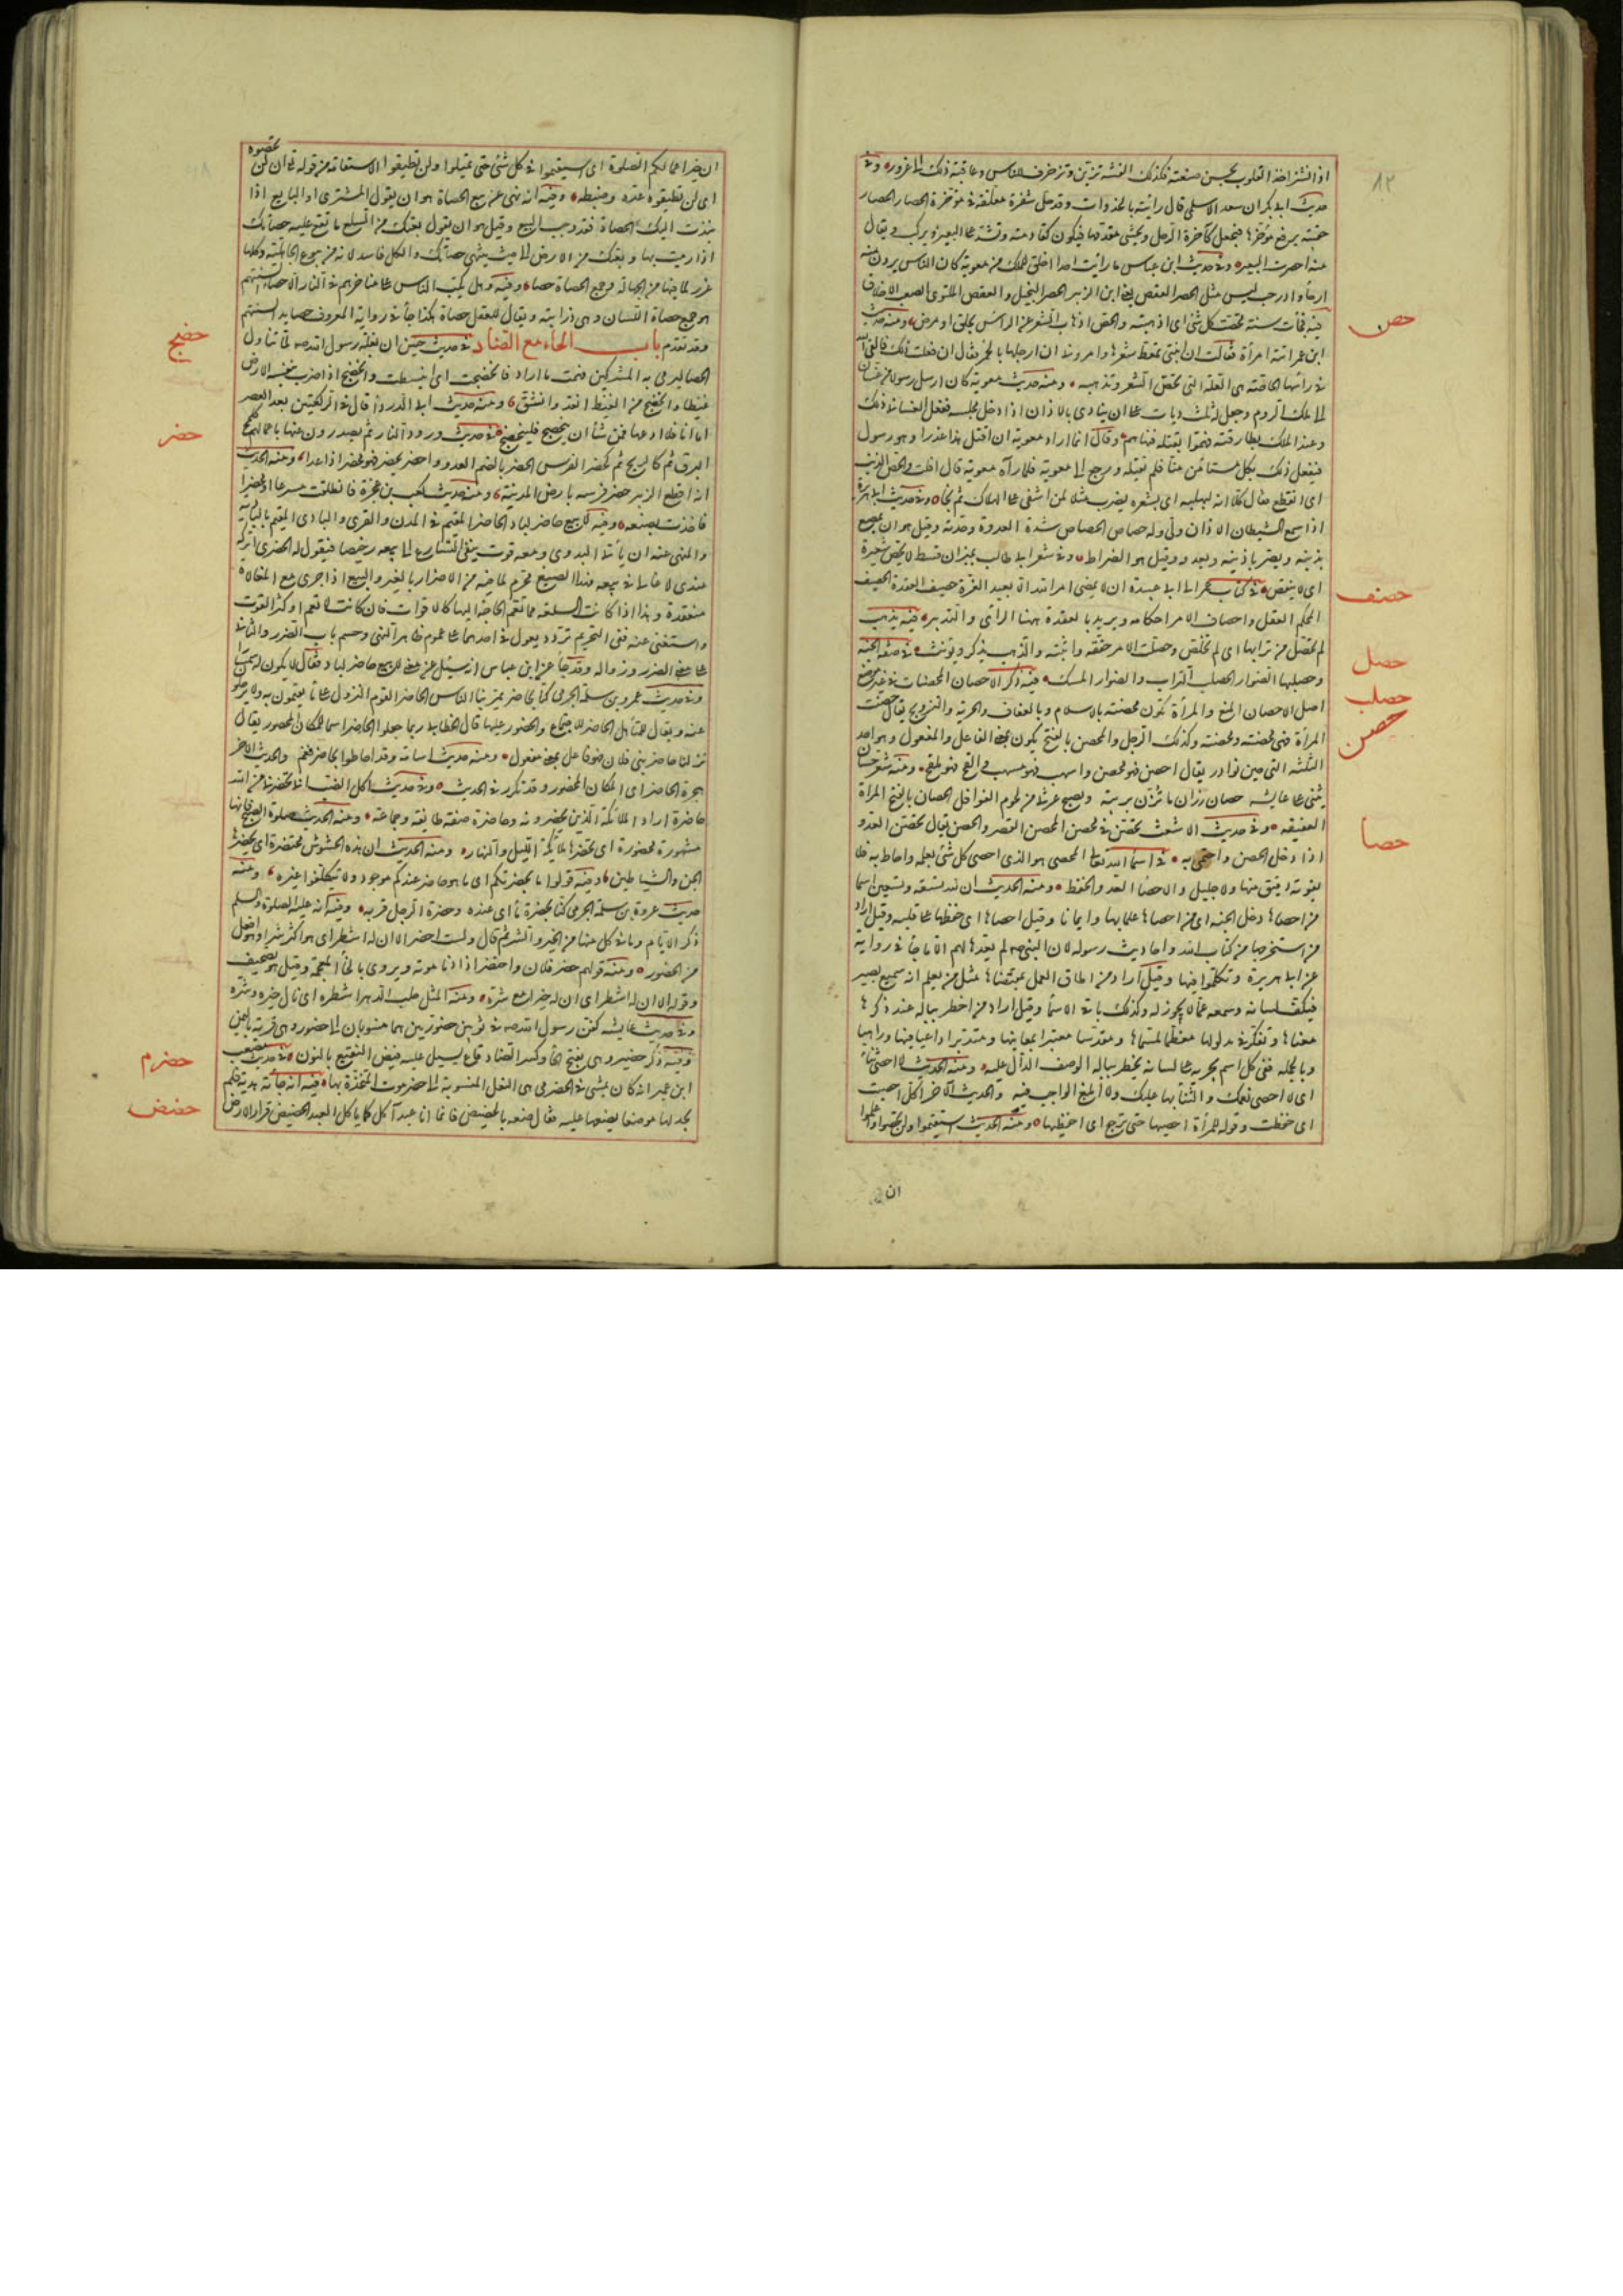 ٨٢
اذا انتشر اخذ القلوب بحسن صنعته فكذلك الفتنة تزين وتزخرف للناس وعاقبة ذلك الى غرور وفى
حديث ابى بكر ان سعد الاسلمى قال رايته بالخذوات وقد حل سفرة معلقة فى مؤخرة الحصار الحصار
حقيبة يرفع مؤخرها فيجعل كآخرة الرحل ويحشى مقدمها فيكون كقادمته وتشد على البعير ويركب ويقال
منه احتصرت البعير وفى حديث ابن عباس ما رايت احدا اخلق للملك من معوية كان الناس يردون منه
ارجاء واد رحب ليس مثل الحصر العقص يعنى ابن الزبير الحصر البخيل والعقص الملتوى الصعب الاخلاق
حص
فيه فجأت سنة حصت كل شئ اى اذهبته والحص اذهاب الشعر عن الراس بحلق او مرض ومنه حديث
ابن عمر اتته امرأة فقالت ان ابنتى تمعط شعرها وامرونى ان ارجلها بالخمر فقال ان فعلت ذلك فالقى الله
فى راسها الحاصة هى العلة التى تحص الشعر وتذهبه ومنه حديث معوية كان ارسل رسولا من غسان
الى ملك الروم وجعل له ثلث ديات على ان ينادى بالاذان اذا دخل مجلسه ففعل الغسانى ذلك
وعند الملك بطارقته فهموا بقتله فنهاهم وقال انما اراد معوية ان اقتل هذا غدرا وهو رسول
فيفعل ذلك بكل مستأمن منا فلم يقتله ورجع الى معوية فلما رآه معوية قال افلت وانحص الذنب
اى انقطع فقال كلا انه لبهلبه اى بشعره يضرب مثلا لمن اشفى على الهلاك ثم نجا وفى حديث ابى هريرة
اذا سمع الشيطان الاذان ولى وله حصاص الحصاص شدة العدو وحدته وقيل هو ان يمصع
بذنبه ويصر باذنيه ويعدو وقيل هو الضراط وفى شعر ابى طالب بميزان قسط لا يحص شعيرة
حصف
اى لا ينقص فى كتاب عمر الى ابى عبيدة ان لا يمضى امر الله الا بعيد الغرة حصيف العقدة الحصيف
المحكم العقل واحصاف الامر احكامه ويريد بالعقدة ههنا الراى والتدبير فيه بذهب
حصل
لم تحصل من ترابها اى لم تخلص وحصلت الامر حققته واثبته والذهب يذكر ويونث فى صفة الجنة
حصلب
وحصلبها الصوار الحصلب التراب والصوار المسك فيه ذكر الاحصان المحصنات فى غير موضع
حصن
اصل الاحصان المنع والمرأة تكون محصنة بالاسلام وبالعفاف والحرية والتزويج يقال حصنت
المرأة فهى محصنة ومحصنة وكذلك الرجل والمحصن بالفتح يكون بمعنى الفاعل والمفعول وهو احد
الثلثة التى جئن نوادر يقال احصن فهو محصن واسهب فهو مسهب والفج فهو ملفج ومنه شعر حسان
يثنى على عايشه حصان رزان ما تزن بريبة وتصبح غرثى من لحوم الغوافل الحصان بالفتح المراة
العفيفه وفى حديث الاشعث تحصن فى محصن المحصن القصر والحصن يقال تحصن العدو
حصا
اذا دخل الحصن واحتمى به فى اسماء الله تعالى المحصى هو الذى احصى كل شئ بعلمه واحاط به فلا
يفوته دقيق منها ولا جليل والاحصاء العد والحفظ ومنه الحديث ان لله تسعة وتسعين اسما
من احصاها دخل الجنة اى من احصاها علما بها وايمانا وقيل احصاها اى حفظها على قلبه وقيل اراد
من استخرجها من كتاب الله واحاديث رسوله لان النبى صم لم يعدها لهم الا ما جأ فى رواية
عن ابى هريرة وتكلموا فيها وقيل اراد من اطاق العمل بمقتضاها مثل من يعلم انه سميع بصير
فيكف لسانه وسمعه عما لا يجوز له وكذلك باقى الاسماء وقيل اراد من اخطر بباله عند ذكرها
معناها وتفكر فى مدلولها معظما لمسماها ومقدسا معتبرا بمعانيها ومتدبرا راغبا فيها وراهبا
وبالجمله ففى كل اسم يجريه على لسانه يخطر بباله الوصف الدال عليه ومنه الحديث لا احصى ثناء
اى لا احصى نعمك والثناء بها عليك ولا ابلغ الواجب فيه والحديث الآخر اكل احصيت
اى حفظت وقوله للمرأة احصيها حتى نرجع اى احفظيها ومنه الحديث استقيموا ولن تحصوا واعلموا
ان
ان خير اعمالكم الصلوة اى استقيموا فى كل شئ حتى تميلوا ولن تطيقوا الاستقامة من قوله تع ان لن
تحصوه
اى لن تطيقوه عده وضبطه وفيه انه نهى عن بيع الحصاة هو ان يقول المشترى او البايع اذا
نبذت اليك الحصاة فقد وجب البيع وقيل هو ان يقول بعتك من السلع ما تقع عليه حصاتك
اذا رميت بها او بعتك من الارض الى حيث ينتهى حصاتك والكل فاسد لانه من بيوع الجاهلية وكلها
غرر لما فيها من الجهالة وجمع الحصاة حصا وفيه وهل يكب الناس على مناخرهم فى النار الا حصا السنتهم
هو جمع حصاة اللسان وهى ذرابته ويقال للعقل حصاة هكذا جأ فى رواية المعروف حصايد السنتهم
حضج
وقد تقدم باب الحاء مع الضاد فى حديث حنين ان بغلة رسول الله صم لما تناول
الحصا ليرمى به المشركين فهمت ما اراد فانحضجت اى انبسطت وانحضج اذا ضرب بنفسه الارض
غيظا وانحضج من الغيظ انقد وانشق ومنه حديث ابى الدرداء قال فى الركعتين بعد العصر
حضر
اما انا فلا ادعها فمن شأ ان ينحضج فلينحضج فى حديث ورود النار ثم يصدرون عنها باعمالهم كلمح
البرق ثم كالريح ثم كحضر الفرس الحضر بالضم العدو واحضر يحضر فهو محضر اذا عدا ومنه الحديث
انه اقطع الزبير حضر فرسه بارض المدينة ومنه حديث كعب بن عجرة فانطلقت مسرعا او محضرا
فاخذت بضبعه وفيه لا يبيع حاضر لباد الحاضر المقيم فى المدن والقرى والبادى المقيم بالبادية
والمنهى عنه ان يأتى البدوى ومعه قوت يبغى التسارع الى بيعه رخيصا فيقول له الحضرى اتركه
عندى لاغالى فى بيعه فهذا الصنيع محرم لما فيه من الاضرار بالغير والبيع اذا جرى مع المغالاة
منعقدة وهذا اذا كانت السلعه مما تعم الحاجة اليها كالاقوات فان كانت لا تعم او كثر القوت
واستغنى عنه ففى التحريم تردد يعول فى احدهما على عموم ظاهر النهى وحسم باب الضرر والثانى
على معنى الضرر وزواله وقد جأ عن ابن عباس انه سئل عن معنى لا يبيع حاضر لباد فقال لا يكون له سمسارا
وفى حديث عمرو بن سلمة الجرمى كنا بحاضر يمر بنا الناس الحاضر القوم النزول على ماء يقيمون به ولا يرحلو
عنه ويقال للمناهل الحاضر للاجتماع والحضور عليها قال الخطابى ربما جعلوا الحاضر اسما للمكان المحضور يقال
نزلنا حاضر بنى فلان فهو فاعل بمعنى مفعول ومنه حديث اسامة وقد احاطوا بحاضر فعم والحديث الاخر
هجرة الحاضر اى المكان المحضور وقد تكرر فى الحديث وفى حديث اكل الضب انى تحضرنى من الله
حاضرة اراد الملائكة الذين يحضرونه وحاضرة صفة طايفة وجماعة ومنه الحديث صلوة الصبح فانها
مشهورة محضورة اى تحضرها ملائكة الليل والنهار ومنه الحديث ان هذه الحشوش محتضرة اى يحضرها
الجن والشياطين وفيه قولوا ما بحضرتكم اى ما هو حاضر عندكم موجود ولا تتكلفوا غيره ومنه
حديث عمروة بن سلمة الجرمى كنا بحضرة مأ اى عنده وحضرة الرجل قربه وفيه انه عليه الصلوة والسلم
ذكر الايام وما فى كل منها من الخير والشر ثم قال والسبت احضر الا ان له اشطرا اى هو اكثر شرا وهو افعل
من الحضور ومنه قولهم حضر فلان واحتضر اذا دنا موته ويروى بالخأ المعجمة وقيل هو تصحيف
وقوله الا ان له اشطرا اى ان له خيرا مع شره ومنه المثل حلب الدهر اشطره اى نال خيره وشره
وفى حديث عايشه كفن رسول الله صم فى ثوبين حضوريين هما منسوبان الى حضور وهى قرية باليمن
حضرم
وفيه ذكر حضير وهى بفتح الحأ وكسر الضاد قاع يسيل عليه فيض النقيع بالنون فى حديث مصعب
ابن عمير انه كان يمشى فى الحضرمى هى النعل المنسوبة الى حضرموت المتخذة بها فيه انه جأته هدية فلم
حضض
يجد لها موضعا يضعها عليه فقال ضعه بالحضيض فانما انا عبد آكل كما ياكل العبد الحضيض قرار الارض